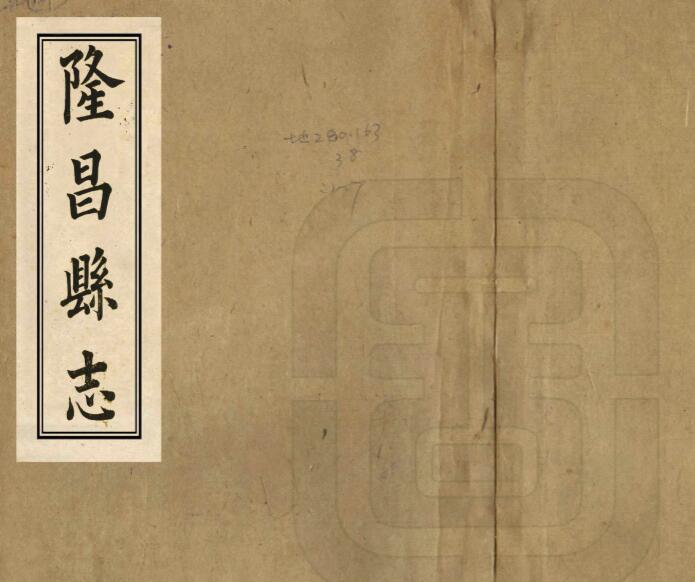 隆昌縣志
地280.163
38